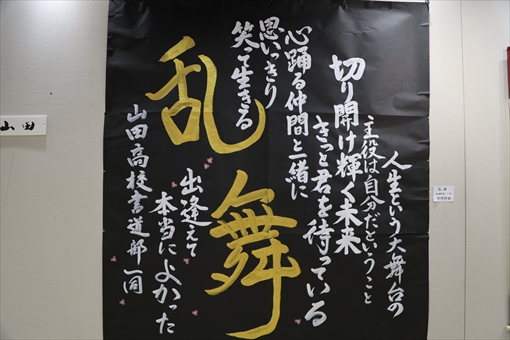 人生という大舞台の
主役は自分だということ
切り開け輝く未来
きっと君を待っている
心踊る仲間と一緒に
思いっきり
笑って生きる
乱舞
出逢えて
本当によかった
山田高校書道部一同
山田